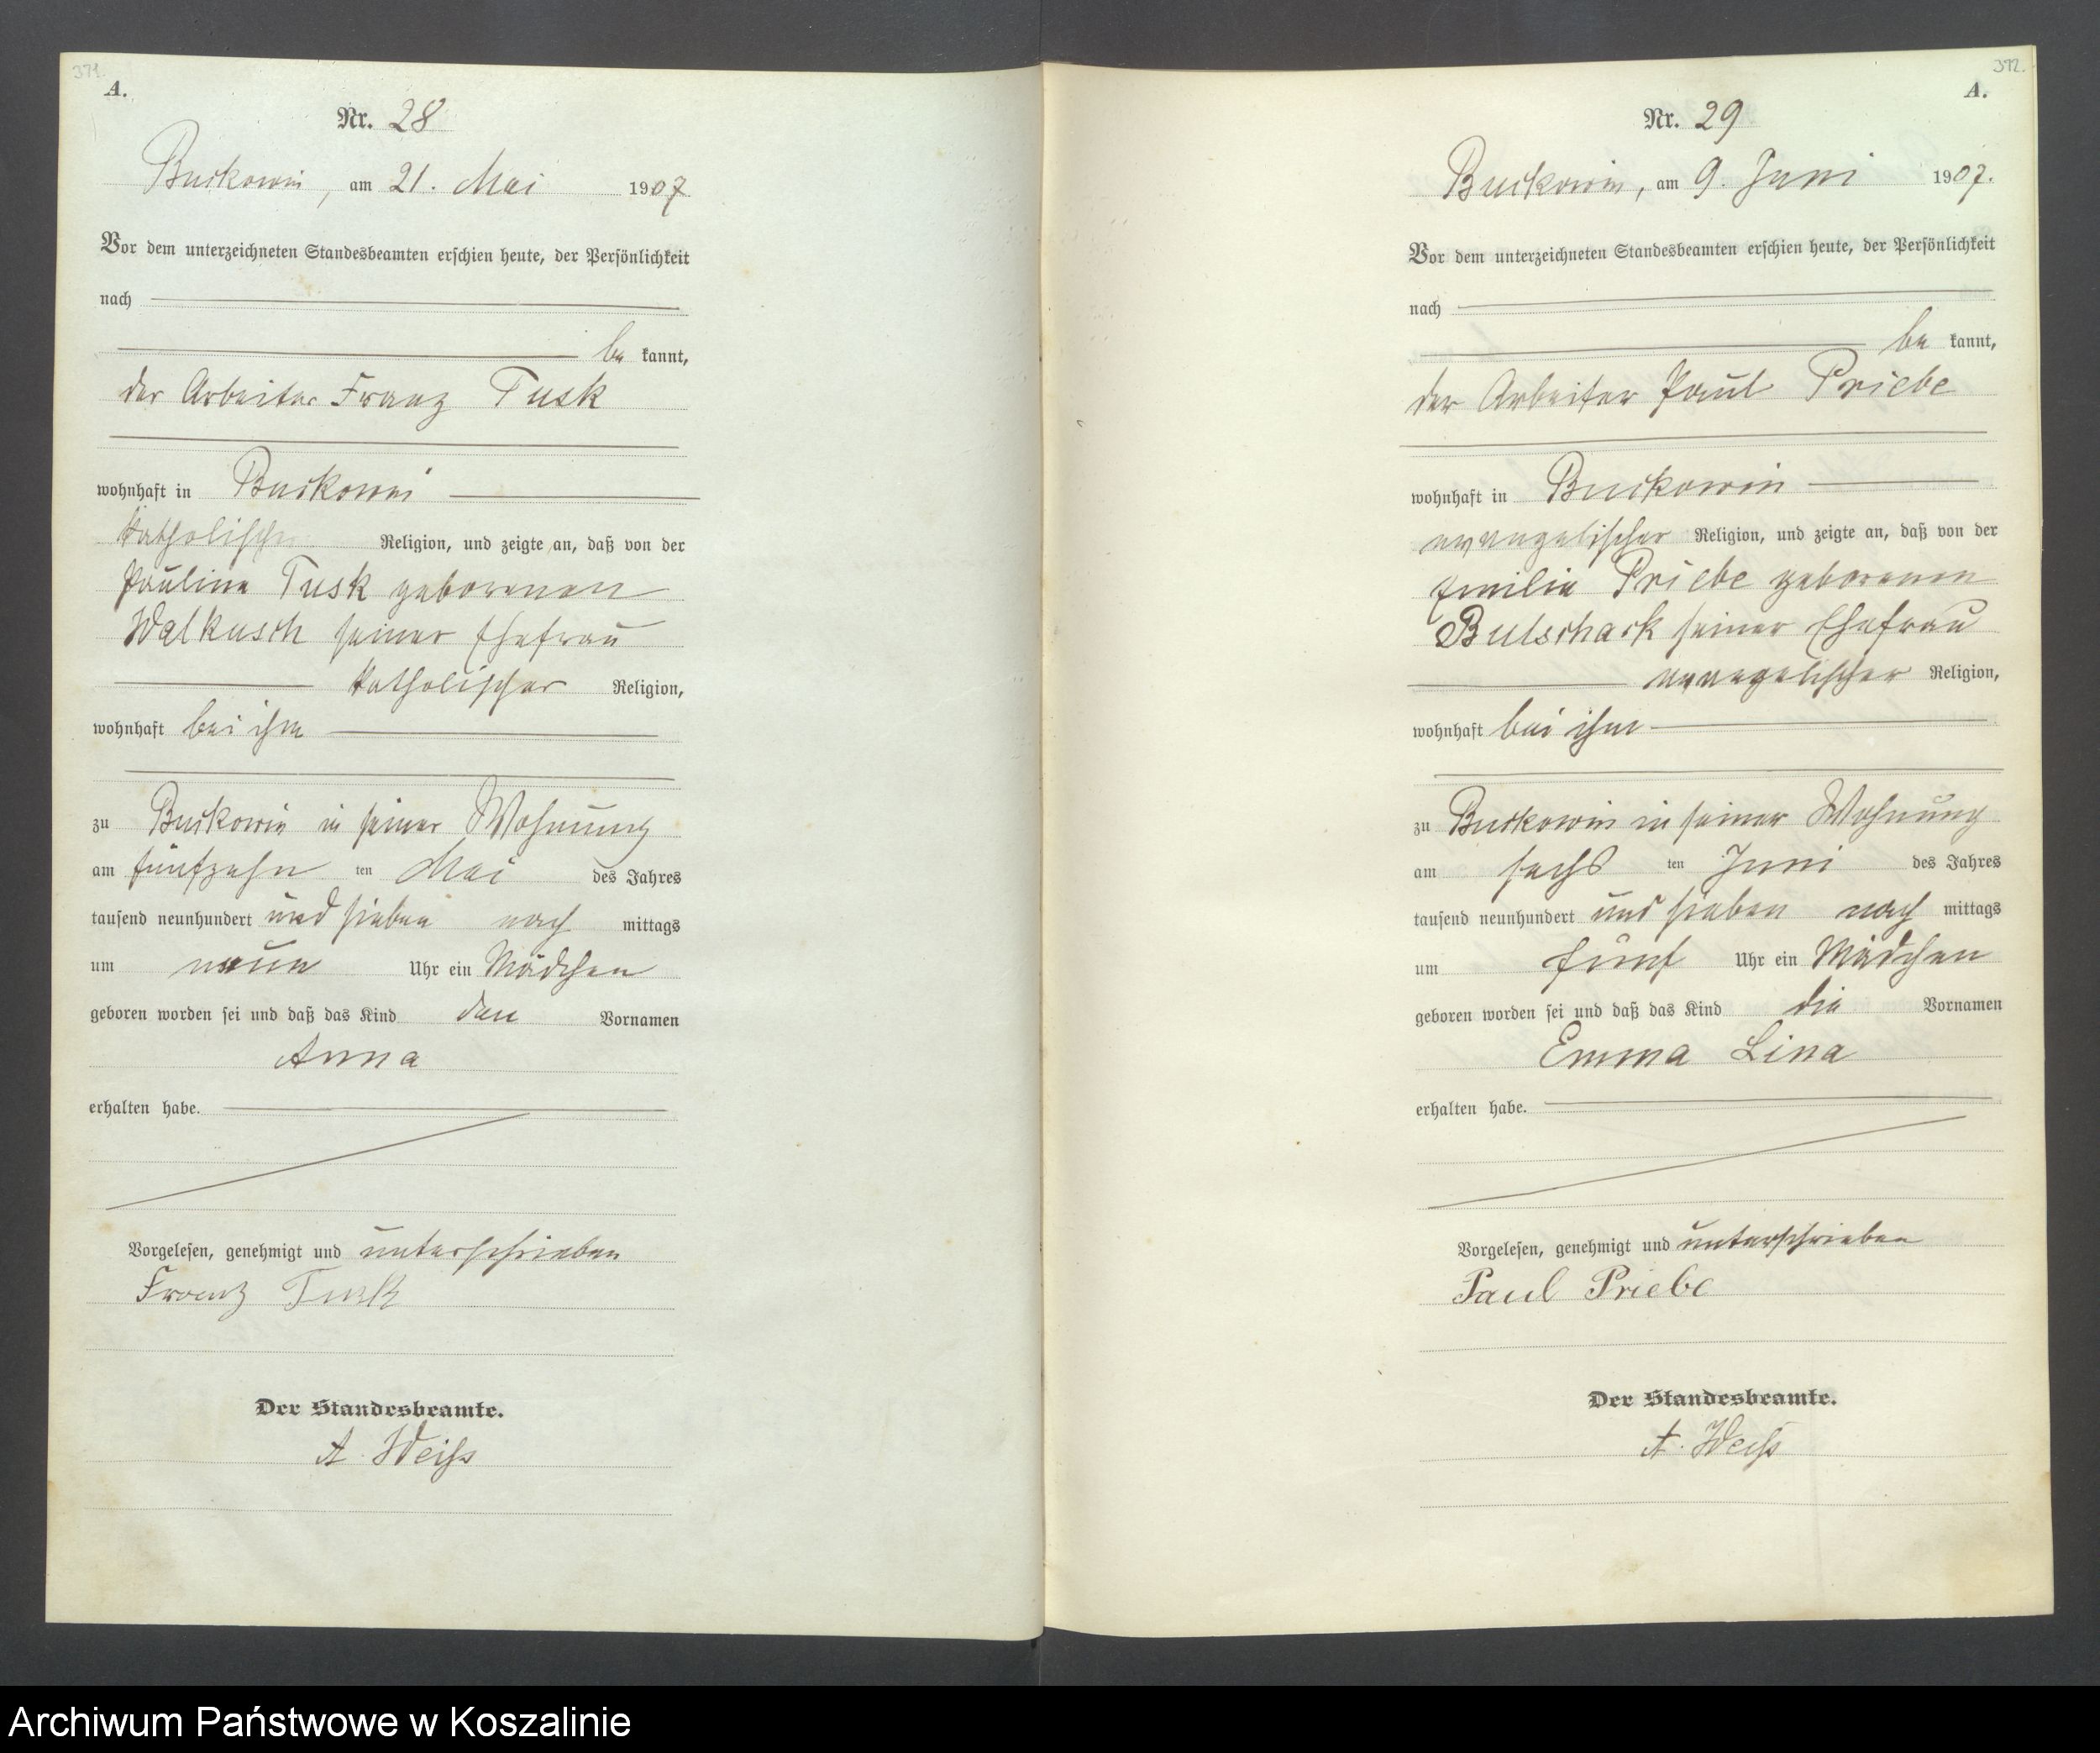 371.
A.
Nr. 28
Buckowin, am 21. Mai 1907
Vor dem unterzeichneten Standesbeamten erschien heute, der Persönlichkeit
nach
be kannt,
der Arbeiter Franz Tusk
wohnhaft in Buckowin
katholischer Religion, und zeigte an, daß von der
Pauline Tusk geborenen
Walkusch seiner Ehefrau
katholischer Religion,
wohnhaft bei ihm
zu Buckowin in seiner Wohnung
am fünfzehn ten Mai des Jahres
tausend neunhundert und sieben nach mittags
um neun Uhr ein Mädchen
geboren worden sei und daß das Kind den Vornamen
Anna
erhalten habe.
Vorgelesen, genehmigt und unterschrieben
Franz Tusk
Der Standesbeamte.
A. Weiß
372.
A.
Nr. 29
Buckowin, am 9. Juni 1907.
Vor dem unterzeichneten Standesbeamten erschien heute, der Persönlichkeit
nach
be kannt,
der Arbeiter Paul Priebe
wohnhaft in Buckowin
evangelischer Religion, und zeigte an, daß von der
Emilie Priebe geborenen
Bulschack seiner Ehefrau
evangelischer Religion,
wohnhaft bei ihm
zu Buckowin in seiner Wohnung
am sechs ten Juni des Jahres
tausend neunhundert und sieben nach mittags
um fünf Uhr ein Mädchen
geboren worden sei und daß das Kind die Vornamen
Emma Lina
erhalten habe.
Vorgelesen, genehmigt und unterschrieben
Paul Priebe
Der Standesbeamte.
A. Weiß
Archiwum Państwowe w Koszalinie